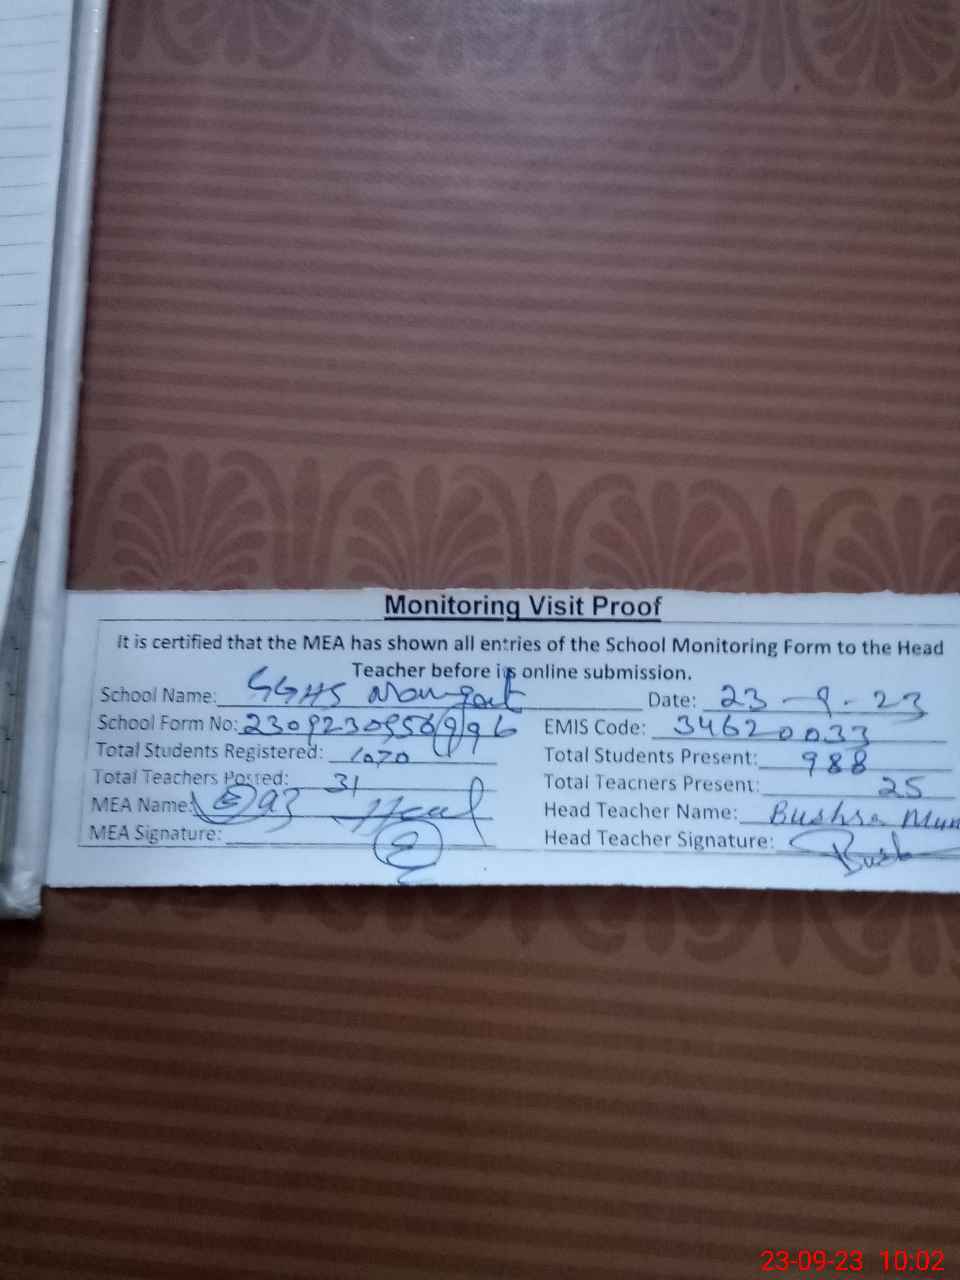 Monitoring Visit Proof
It is certified that the MEA has shown all entries of the School Monitoring Form to the Head
Teacher before its online submission.
School Name: GGHS Mongat Date: 23-9-23
School Form No: EMIS Code: 34620033
Total Students Registered: 1070 Total Students Present: 988
Total Teachers Posted: 31 Total Teacners Present: 25
MEA Name: Head Teacher Name: Bushra
MEA Signature: Head Teacher Signature:
23-09-23 10:02